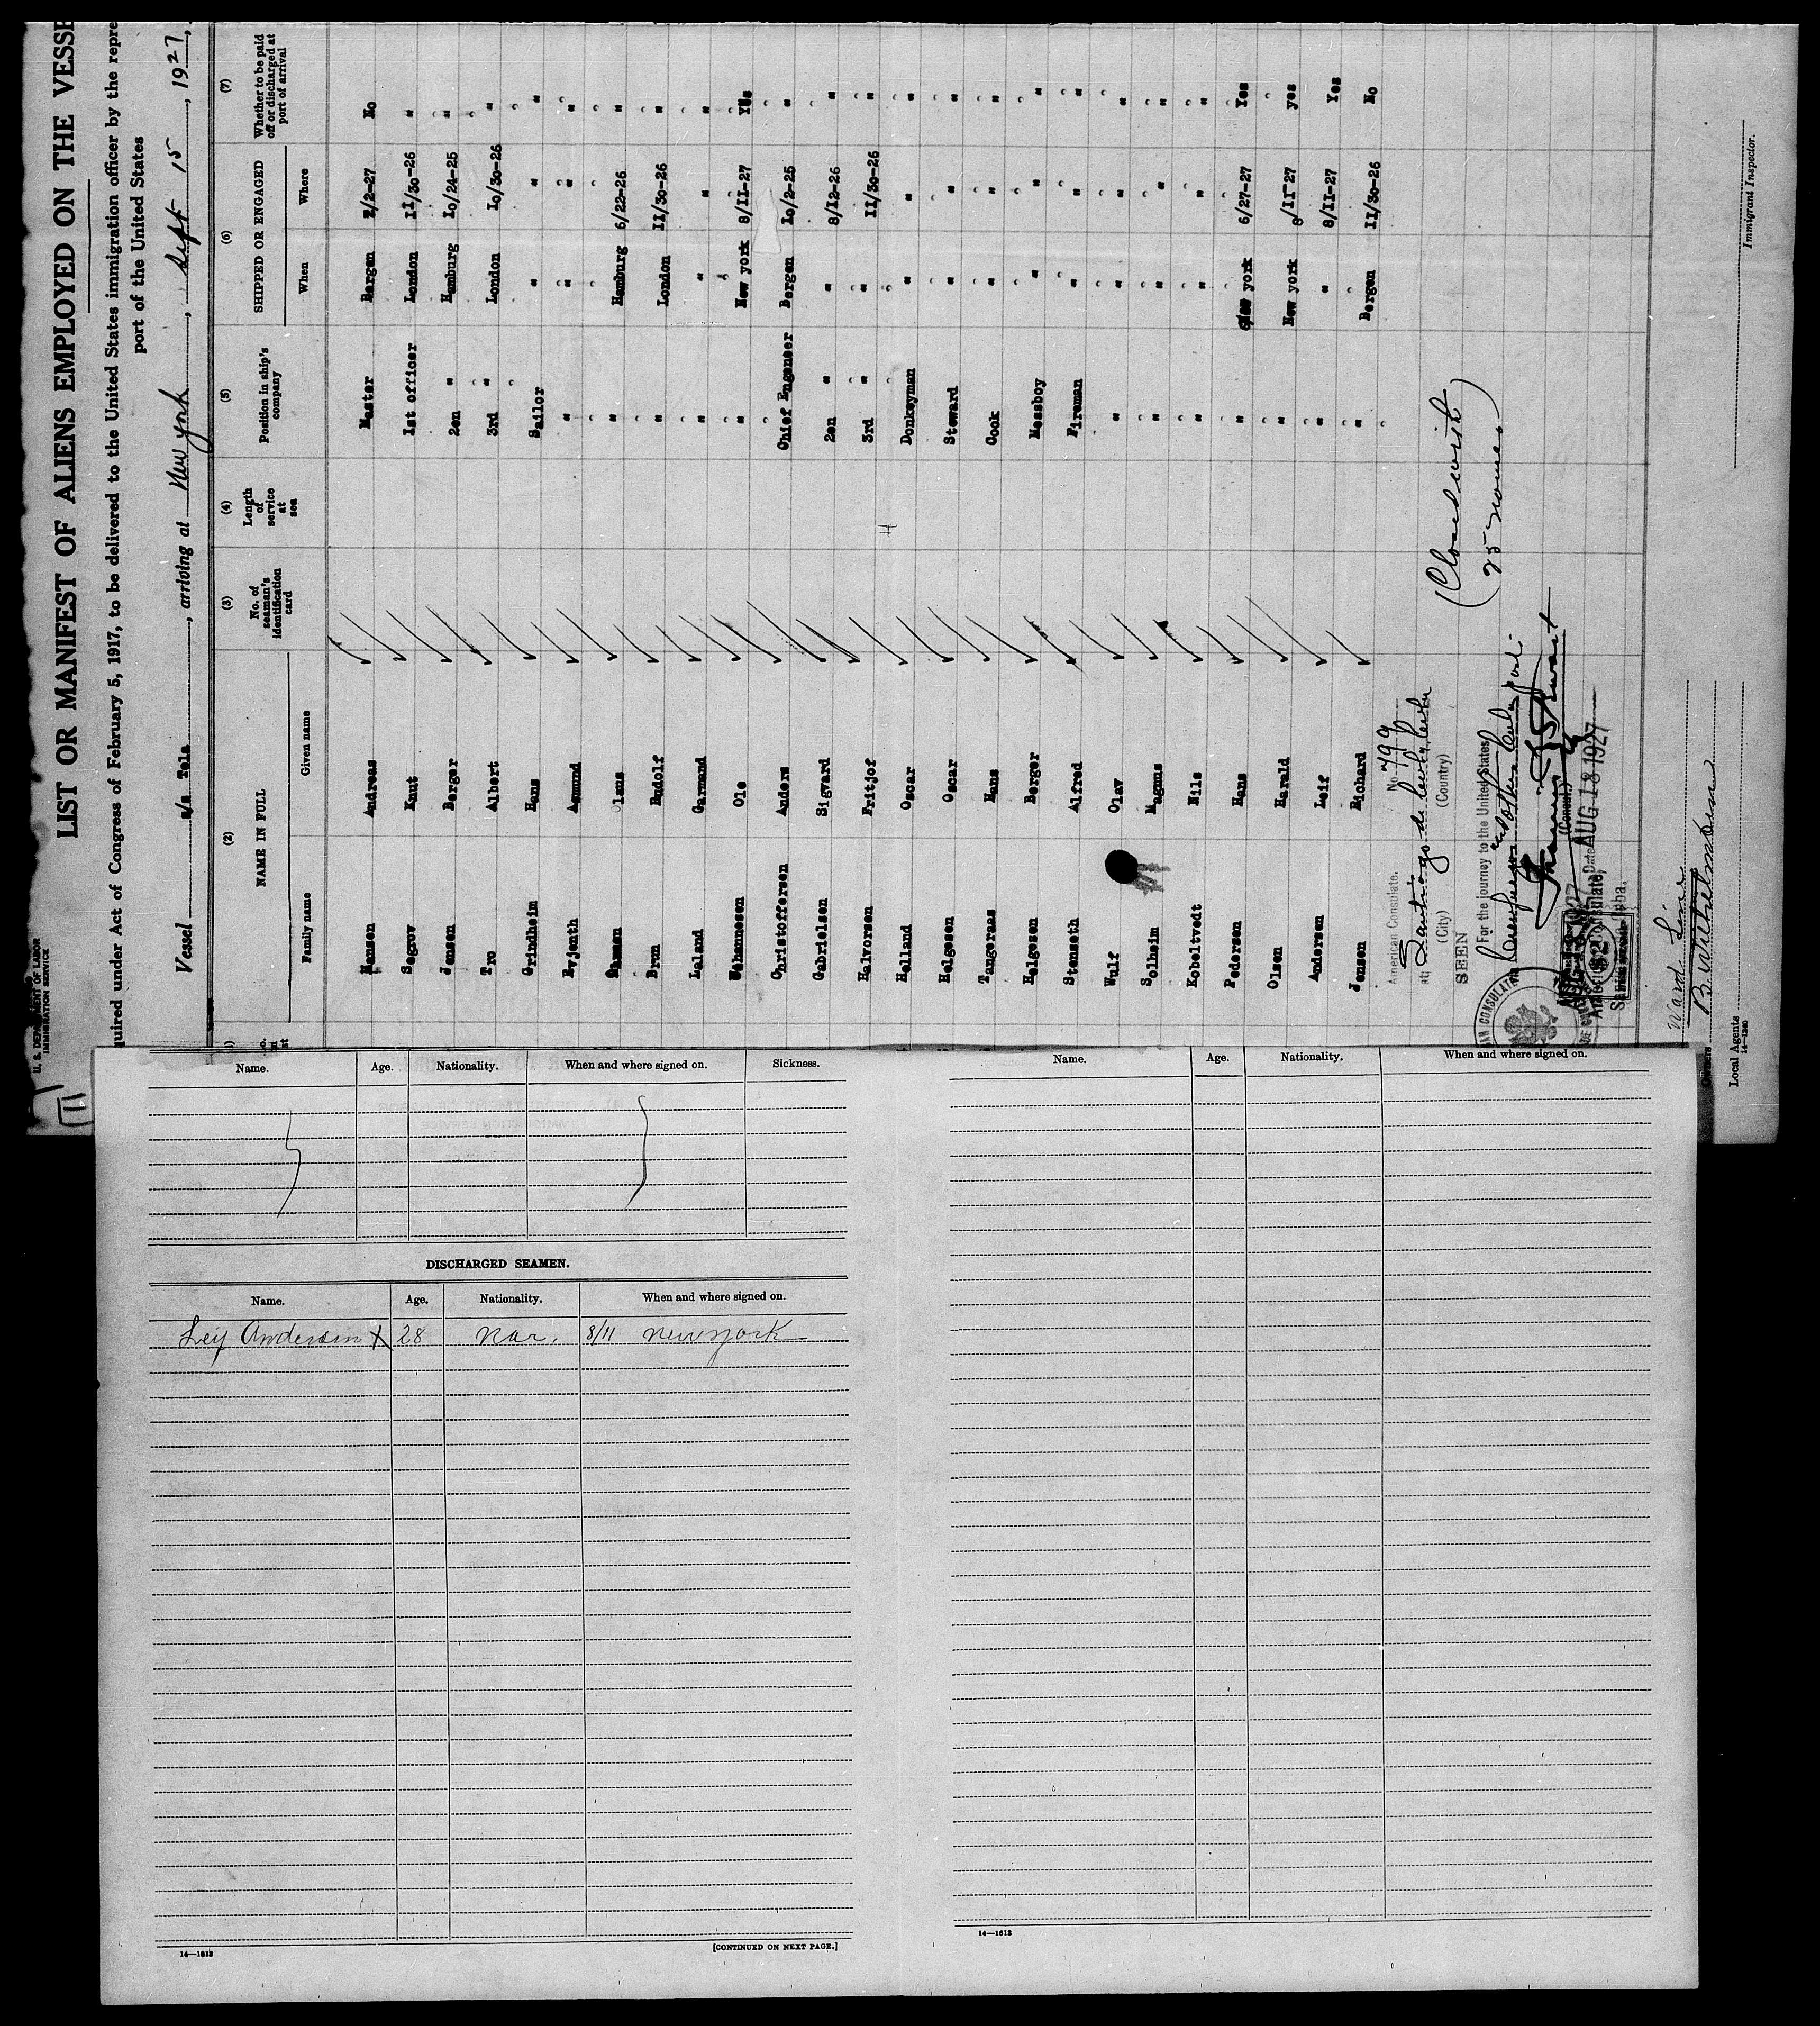 U. S. DEPARTMENT OF LABOR
IMMIGRATION SERVICE
LIST OR MANIFEST OF ALIENS EMPLOYED ON THE VESSE
quired under Act of Congress of February 5, 1917, to be delivered to the United States immigration officer by the repre
port of the United States
Vessel s/s Tela, arriving at New york, Sept 15, 1927,
(2) (3) (4) (5) (6) (7)
NAME IN FULL No. of seaman's identification card Length of service at sea Position in ship's company SHIPPED OR ENGAGED Whether to be paid off or discharged at port of arrival
Family name Given name When Where
Hansen Andreas Master Bergen 2/2-27 No
Segrov Knut 1st officer London 11/30-26 "
Jensen Berger 2en " Hamburg 10/24-25 "
Tro Albert 3rd " London 10/30-26 "
Grindheim Hans Sailor " " "
Evjenth Asmund " " " "
Hansen Olaus " Hamburg 6/22-26 "
Brun Rudolf " London 11/30-26 "
Leland Garmand " " " "
Johannesen Ole " New york 8/11-27 Yes
Christoffersen Anders Chief Engeneer Bergen 10/2-25 "
Gabrielsen Sigvard 2en " " 8/12-26 "
Halvorsen Fritjof 3rd " " 11/30-26 "
Helland Oscar Donkeyman " " "
Helgesen Oscar Steward " " "
Tangeraas Hans Cook " " "
Helgesen Berger Messboy " " "
Stenseth Alfred Fireman " " "
Wulf Olav " " " "
Solheim Magnus " " " "
Kobeltvedt Nils " " " "
Pedersen Hans " New york 6/27-27 Yes
Olsen Harald " New york 8/11-27 yes
Andersen Leif " " 8/11-27 Yes
Jensen Richard " Bergen 11/30-26 No
American Consulate. No. 799
at Santiago de Cuba, Cuba
(City) (Country)
SEEN
(Closed with
25 names.)
For the journey to the United States
(Consul.)
Date AUG 18 1927
Ward Line
B. Wilhelmsen
Owners
Local Agents
14—1240
Immigrant Inspector.
Name. Age. Nationality. When and where signed on. Sickness.
DISCHARGED SEAMEN.
Name. Age. Nationality. When and where signed on.
Leif Andersen X 28 Nor. 8/11 New york
14—1613
[CONTINUED ON NEXT PAGE.]
Name. Age. Nationality. When and where signed on.
14—1613